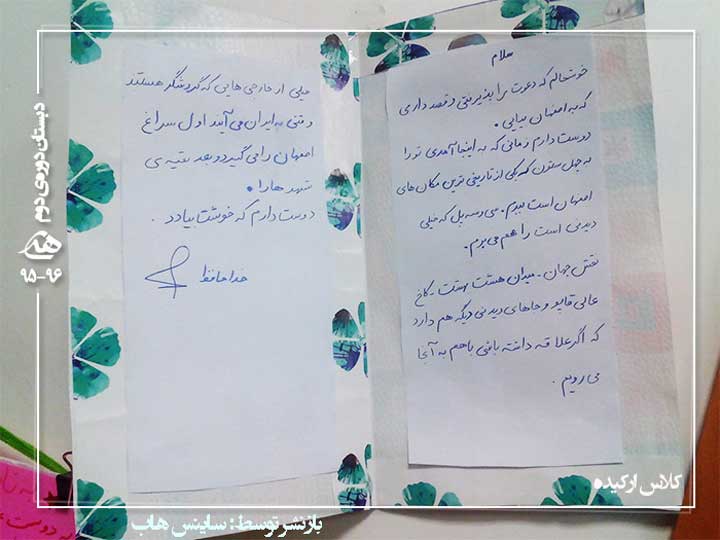 سلام
خوشحالم که دعوت مرا پذیرفتی و قصد داری
که به اصفهان بیایی .
دوست دارم زمانی که به اینجا آمدی تو را
به چهل ستون که یکی از تاریخی ترین مکان های
اصفهان است ببرم . سی و سه پل که خیلی
دیدنی است را هم می برم .
نقش جهان - میدان هشت بهشت - کاخ
عالی قاپو و جاهای دیدنی دیگه هم دارد
که اگر علاقه داشته باشی باهم به آنجا
می رویم .
خیلی از خارجی هایی که گردشگر هستند
وقتی به ایران می آیند اول سراغ
اصفهان را می گیرد و بعد بقیه ی
شهر ها را .
دوست دارم که خوشت بیاد .
خداحافظ
دبستان دوره‌ی دوم
هدی
۹۵-۹۶
کلاس ارکیده
بازنشر توسط: ساینس هاب